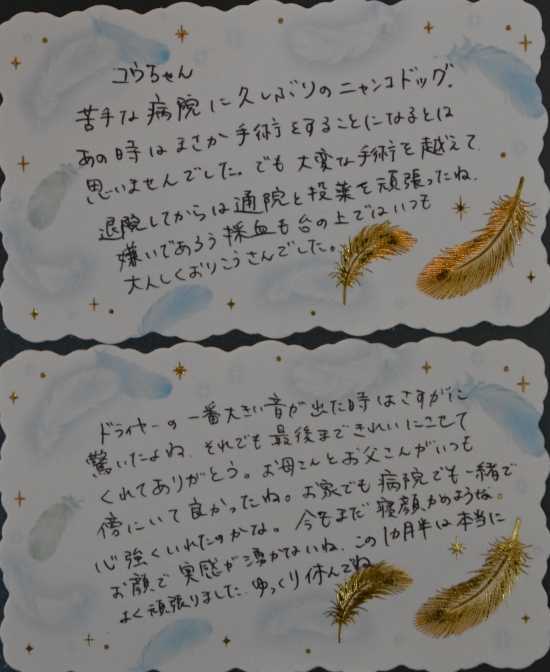 コウちゃん
苦手な病院に久しぶりのニャンコドッグ。
あの時はまさか手術をすることになるとは
思いませんでした。でも大変な手術を越えて、
退院してからは通院と投薬を頑張ったね。
嫌いであろう採血も台の上ではいつも
大人しくおりこうさんでした。
ドライヤーの一番大きい音が出た時はさすがに
驚いたよね、それでも最後まできれいにさせて
くれてありがとう。お母さんとお父さんがいつも
傍にいて良かったね。お家でも病院でも一緒で
心強くいれたのかな。今もまだ寝顔かのような
お顔で実感が湧かないね、この1カ月半は本当に
よく頑張りました、ゆっくり休んでね